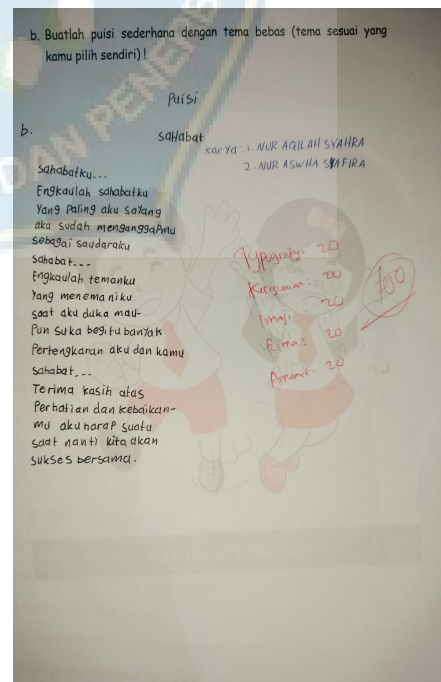 b. Buatlah puisi sederhana dengan tema bebas (tema sesuai yang
kamu pilih sendiri)!
Puisi
b.
Sahabat
karya : 1. NUR AQILAH SYAHRA
2. NUR ASWHA SYAFIRA
Sahabatku...
Engkaulah sahabatku
Yang Paling aku Sayang
aku sudah menganggapmu
Sebagai Saudaraku
Sahabat...
Engkaulah temanku
Yang menemaniku
Saat aku duka mau-
Pun Suka begitu banyak
Pertengkaran aku dan kamu
Sahabat...
Terima kasih atas
Perhatian dan kebaikan-
mu aku harap Suatu
Saat nanti kita akan
Sukses bersama.
Typografy- 20
Kesesuaian: 20
Imaji 20
Rima: 20
Amanat- 20
100
DAN PENER